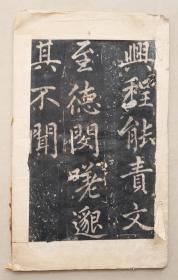 興程能責文
至德閎曦邈
其不聞